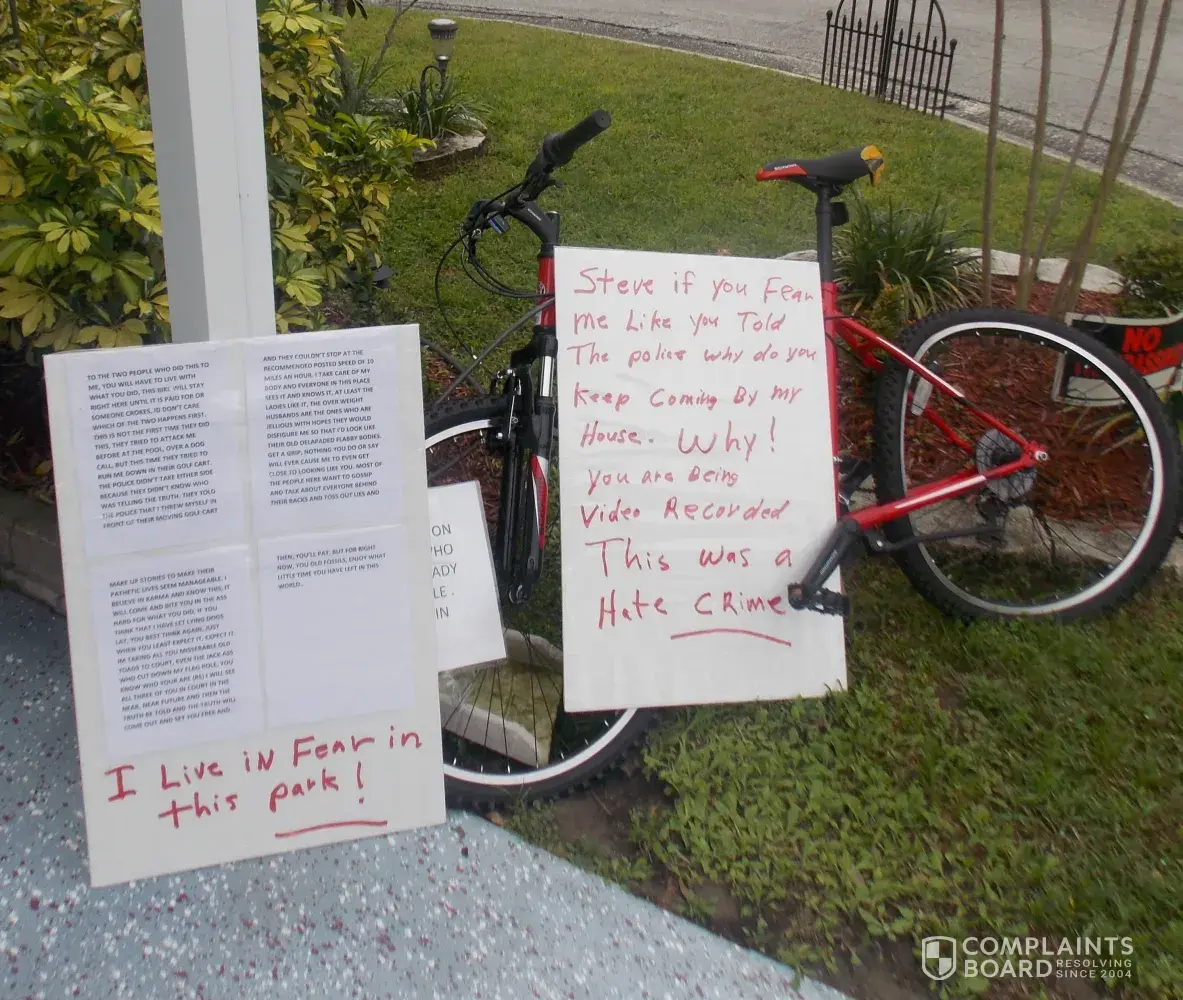 TO THE TWO PEOPLE WHO DID THIS TO
ME, YOU WILL HAVE TO LIVE WITH
WHAT YOU DID, THIS BIKE WILL STAY
RIGHT HERE UNTIL IT IS PAID FOR OR
SOMEONE CROKES, ID DON'T CARE
WHICH OF THE TWO HAPPENS FIRST.
THIS IS NOT THE FIRST TIME THEY DID
THIS, THEY TRIED TO ATTACK ME
BEFORE AT THE POOL, OVER A DOG
CALL, BUT THIS TIME THEY TRIED TO
RUN ME DOWN IN THEIR GOLF CART.
THE POLICE DIDN'T TAKE EITHER SIDE
BECAUSE THEY DIDN'T KNOW WHO
WAS TELLING THE TRUTH. THEY TOLD
THE POLICE THAT I THREW MYSELF IN
FRONT OF THEIR MOVING GOLF CART
AND THEY COULDN'T STOP AT THE
RECOMMENDED POSTED SPEED OF 10
MILES AN HOUR. I TAKE CARE OF MY
BODY AND EVERYONE IN THIS PLACE
SEES IT AND KNOWS IT, AT LEAST THE
LADIES LIKE IT, THE OVER WEIGHT
HUSBANDS ARE THE ONES WHO ARE
JELLIOUS WITH HOPES THEY WOULD
DISFIGURE ME SO THAT I'D LOOK LIKE
THEIR OLD DELAPADED FLABBY BODIES.
GET A GRIP, NOTHING YOU DO OR SAY
WILL EVER CAUSE ME TO EVEN GET
CLOSE TO LOOKING LIKE YOU. MOST OF
THE PEOPLE HERE WANT TO GOSSIP
AND TALK ABOUT EVERYONE BEHIND
THEIR BACKS AND TOSS OUT LIES AND
MAKE UP STORIES TO MAKE THEIR
PATHETIC LIVES SEEM MANAGEABLE. I
BELIEVE IN KARMA AND KNOW THIS, IT
WILL COME AND BITE YOU IN THE ASS
HARD FOR WHAT YOU DID, IF YOU
THINK THAT I HAVE LET LYING DOGS
LAY, YOU BEST THINK AGAIN, JUST
WHEN YOU LEAST EXPECT IT, EXPECT IT
IM TAKING ALL YOU MISSERABLE OLD
TOADS TO COURT, EVEN THE JACK ASS
WHO CUT DOWN MY FLAG POLE, YOU
KNOW WHO YOUR ARE (RS) I WILL SEE
ALL THREE OF YOU IN COURT IN THE
NEAR, NEAR FUTURE AND THEN THE
TRUTH BE TOLD AND THE TRUTH WILL
COME OUT AND SET YOU FREE AND
THEN, YOU'LL PAY, BUT FOR RIGHT
NOW, YOU OLD FOSSILS, ENJOY WHAT
LITTLE TIME YOU HAVE LEFT IN THIS
WORLD..
I Live in Fear in
this park!
ON
HO
ADY
LE.
IN
Steve if you Fear
me Like you Told
The police why do you
keep Coming By my
House. Why!
you are Being
Video Recorded
This was a
Hate CRime
NO
COMPLAINTS
BOARD RESOLVING
SINCE 2004